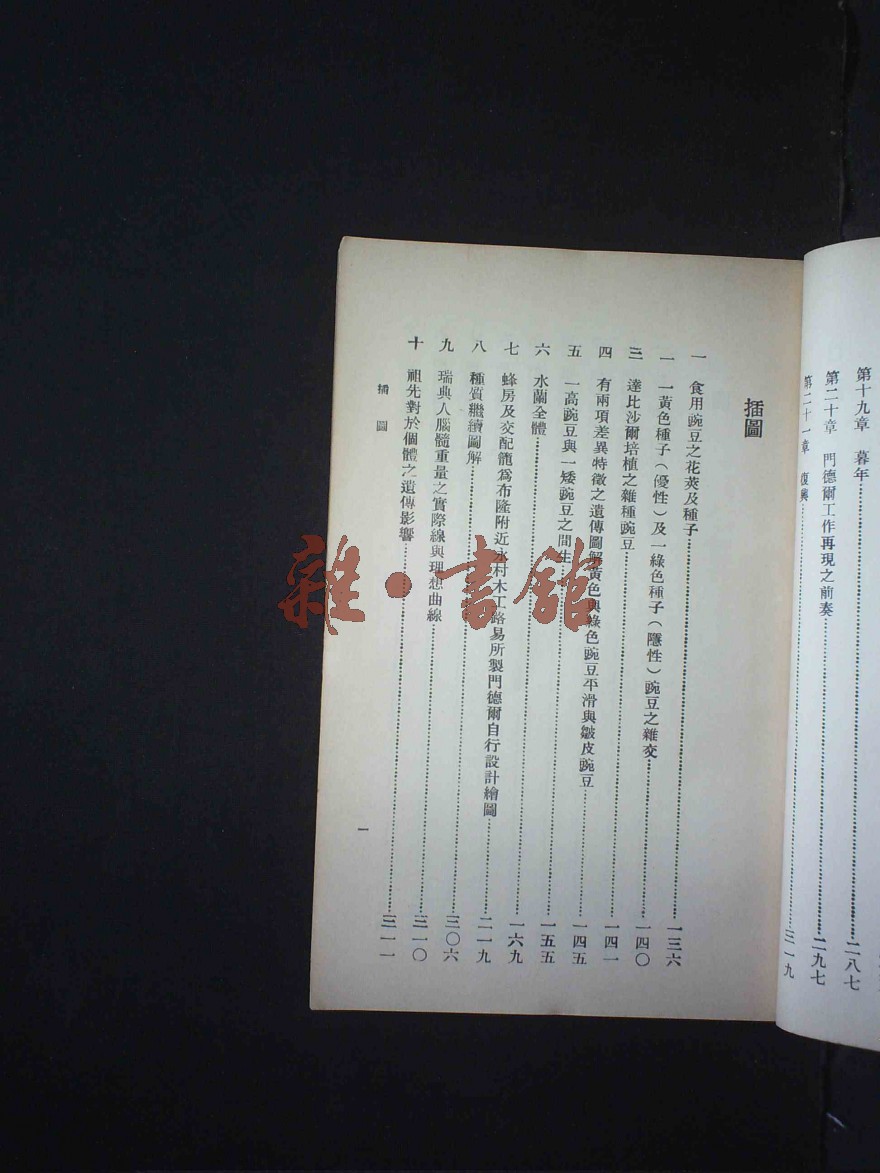 第十九章 暮年……二八七
第二十章 門德爾工作再現之前奏……二九七
第二十一章 復興……三一九
插圖
一 食用豌豆之花莢及種子……一三六
二 一黃色種子（優性）及一綠色種子（隱性）豌豆之雜交……一四〇
三 達比沙爾培植之雜種豌豆……一四一
四 有兩項差異特徵之遺傳圖解黃色與綠色豌豆平滑與皺皮豌豆……一四五
五 一高豌豆與一矮豌豆之間生……一五五
六 水蘭全體……一六九
七 蜂房及交配籠爲布隆附近永村木工路易所製門德爾自行設計繪圖……二一九
八 種質繼續圖解……三〇六
九 瑞典人腦髓重量之實際線與理想曲線……三一〇
十 祖先對於個體之遺傳影響……三一一
插圖
一
雜·書館